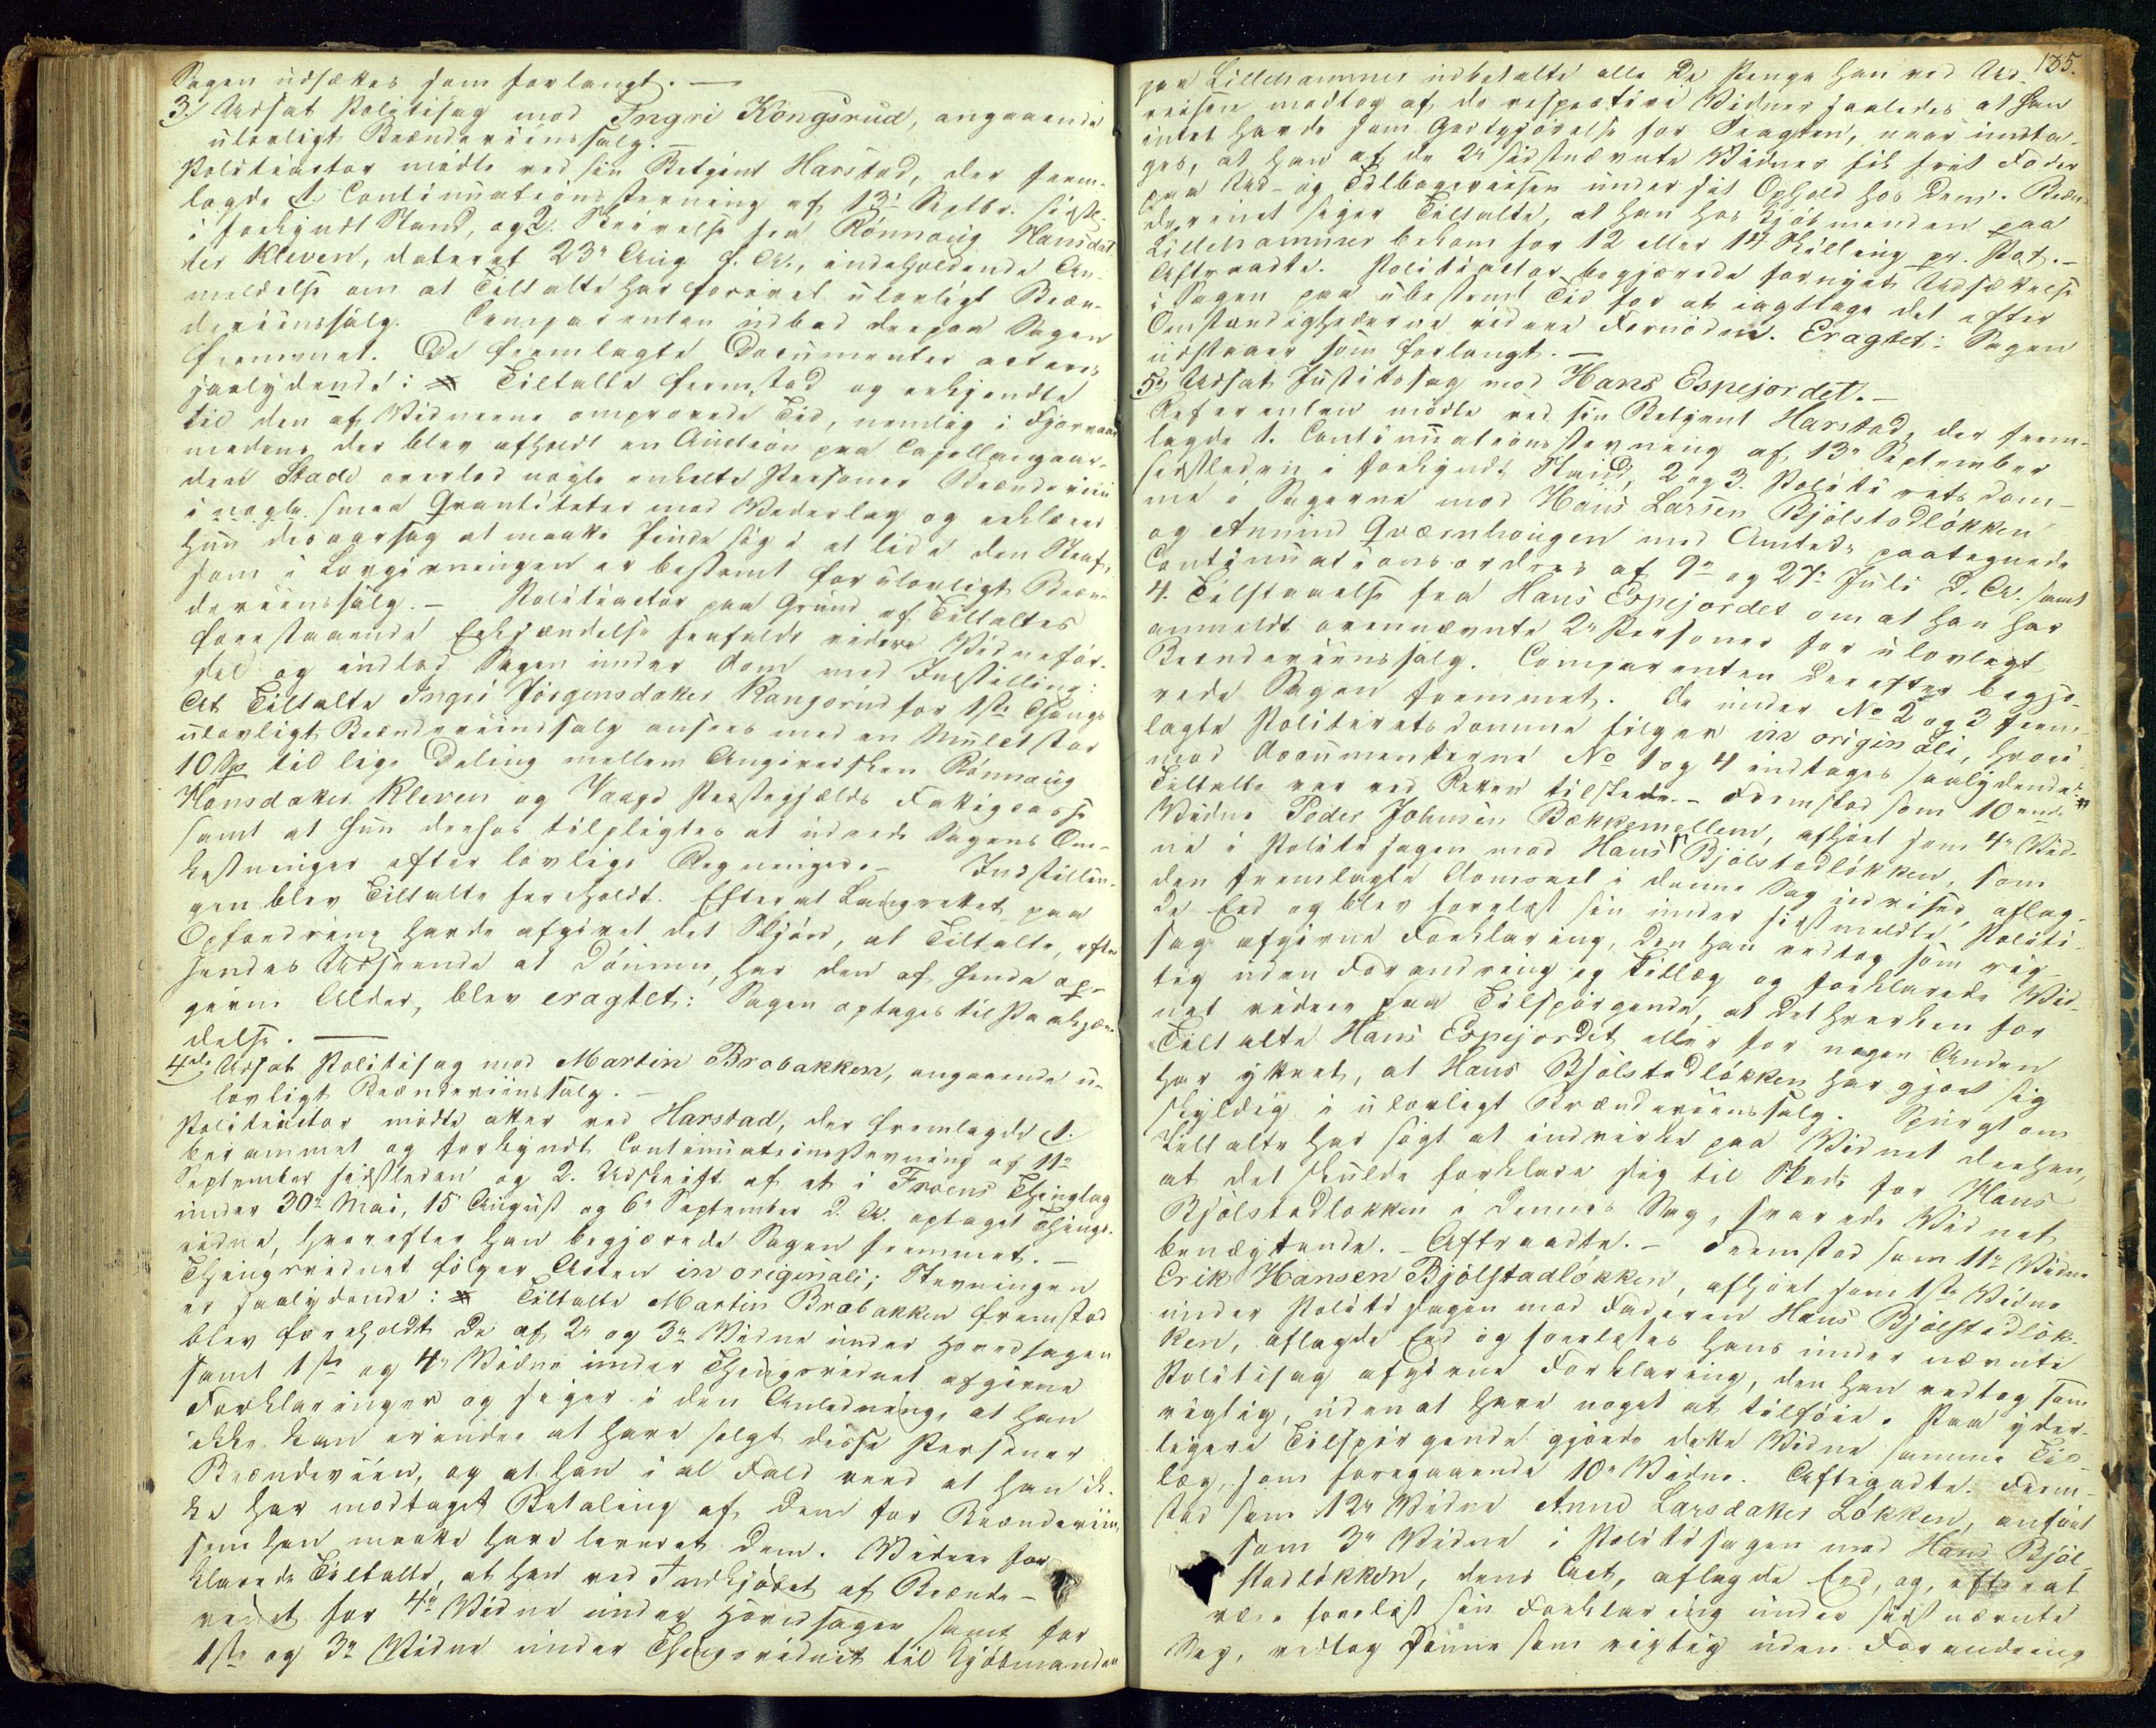 Sagen udsættes som forlangt. —
3. Udsat Politisag mod Ingri Kongsrud, angaaende
ulovligt Brændeviinssalg. —
Politiactor mødte ved sin Betjent Harstad, der frem-
lagde 1. Continuationsstevning af 13de Septbr. sidstl.
i forkyndt Stand, og 2. Skrivelse fra Rønnaug Hansdat-
ter Kleven, dateret 23de Aug d. A., indeholdende An-
meldelse om at Tiltalte har forøvet ulovligt Bræn-
deviinssalg. Comparenten udbad derpaa Sagen
fremmet. De fremlagte Documenter acteres
saalydende: # Tiltalte fremstod og erkjendte
til den af Vidnerne ommprovede Tid, nemlig i Fjorvaar
medens der blev afholdt en Auction paa Capellangaar-
den Stade overlod nogle enkelte Personer Brændeviin
i nogle smaa Qvantiteter mod Vederlag og erklærer
hun desaarsag at maatte finde sig i at lide den Straf,
som i Lovgivningen er bestemt for ulovligt Bræn-
deviinssalg. — Politiactor paa Grund af Tiltaltes
forestaaende Erkjendelse frafaldt videre Vidneför-
sel og indlod Sagen under Dom med Indstilling:
At Tiltalte Ingri Jørgensdatter Kongsrud for 1ste Gangs
ulovligt Brændeviinssalg ansees med en Mulct stor
10 Sp. til lige Deling mellem Angiversken Rønnaug
Hansdatter Kleven og Vaage Præstegjælds Fattigcasse
samt at hun derhos tilpligtes at udrede Sagens Om-
kostninger efter lovlige Regninger. — Indstillin-
gen blev Tiltalte foreholdt. Efterat Laugrettet paa
Opfordring havde afgivet det Skjøn, at Tiltalte, efter
hendes Udseende at dømme, har den af hende op-
givne Alder, blev eragtet: Sagen optages til Paakjen-
delse. —
4de Udsat Politisag mod Martin Brabakken, angaaende u-
lovligt Brændeviinssalg. —
Politiactor mødte atter ved Harstad, der fremlagde 1.
berammet og forkyndt Continuationsstevning af 11te
September sidstleden og 2. Udskrift af et i Froens Thinglag
under 30te Mai, 15de August og 6te September d. A. optaget Things-
vidne, hvorefter han begjærede Sagen fremmet. —
Thingsvidnet følger Acten in originali; Stevningen
er saalydende: # Tiltalte Martin Brabakken fremstod
blev foreholdt de af 2det og 3die Vidne under Hovedsagen
samt 1ste og 4de Vidne under Thingsvidnet afgivne
Forklaringer og siger i den Anledning, at han
ikke kan erindre at have solgt disse Personer
Brændeviin, og at han i al Fald veed at han ik-
ke har modtaget Betaling af dem for Brændeviin,
som han maatte have leveret dem. Videre for
klarede Tiltalte, at han ved Indkjøbet af Brænde-
vinet for 4de Vidne under Hovedsagen samt for
1ste og 3die Vidne under Thingsvidnet til Kjøbmanden
135.
paa Lillehammer udbetalte alle de Penge han ved Ud-
reisen modtog af de respective Vidner saaledes at han
intet havde som Godtgjørelse for Fragten, naar undta-
ges, at han af de 2de sidstnævnte Vidner fik frit Foder
paa Ud- og Tilbagereisen under sit Ophold hos dem. Bræn-
devinet siger Tiltalte, at han hos Kjøbmanden paa
Lillehammer bekom for 12 eller 14 Skilling pr. Pot. —
Aftraadte. Politiactor begjærede fornyet Udsættelse
i Sagen paa ubestemt Tid for at iagttage det efter
Omstændighederne videre Fornødne. Eragtet: Sagen
udstaaer som forlangt. —
5. Udsat Justitssag mod Hans Espejordet. —
Referenten mødte ved sin Betjent Harstad, der frem-
lagde 1. Continuationsstevning af 13de September
sidstleden i forkyndt Stand, 2 og 3. Politiretsdom-
me i Sagerne mod Hans Larsen Bjølstadløkken
og Amund Qværnhougen med Amtets paategnede
Continuationsordres af 9de og 27de Juli d. A. samt
4. Tilstaaelse fra Hans Espejordet om at han har
anmeldt ovennævnte 2de Personer for ulovligt
Brændeviinssalg. Comparenten derefter begjæ-
rede Sagen fremmet. De under No 2 og 3 frem-
lagte Politiretsdomme følger in originali, hvori-
mod Documenterne No 1 og 4 indtages saalydende: #
Tiltalte var ved Retten tilstede. — Fremstod som 10ende
Vidne Peder Johnsen Bækkemellem, afhørt som 4de Vid-
ne i Politisagen mod Hans Bjølstadløkken, som
den fremlagte Domsact i denne Sag udviser, aflag-
de Eed og blev forelæst sin under sidstmeldte Politi-
sag afgivne Forklaring, den han vedtog som rig-
tig uden Forandring og Tillæg og forklarede Vid-
net videre paa Tilspørgende, at det hverken for
Tiltalte Hans Espejordet eller for nogen Anden
har yttret, at Hans Bjølstadløkken har gjort sig
skyldig i ulovligt Brændeviinssalg. Spurgt om
Tiltalte har søgt at indvirke paa Vidnet derhen,
at det skulde forklare sig til Skade for Hans
Bjølstadløkken i dennes Sag, svarede Vidnet
benægtende. — Aftraadte. — Fremstod som 11te Vidne
Erik Hansen Bjølstadløkken, afhørt som 1ste Vidne
under Politisagen mod Faderen Hans Bjølstadløk-
ken, aflagde Eed og forelæstes hans under nævnte
Politisag afgivne Forklaring, den han vedtog som
rigtig, uden at have noget at tilføie. Paa yder-
ligere Tilspørgende gjorde dette Vidne samme Til-
læg, som foregaaende 10de Vidne. Aftraadte. Frem-
stod som 12te Vidne Anne Larsdatter Løkken, anført
som 3die Vidne i Politisagen mod Hans Bjøl-
stadløkken, dens Act, aflagde Eed, og, efterat
være forelæst sin Forklaring under sidstnævnte
Sag, vedtog samme som rigtig uden Forandring